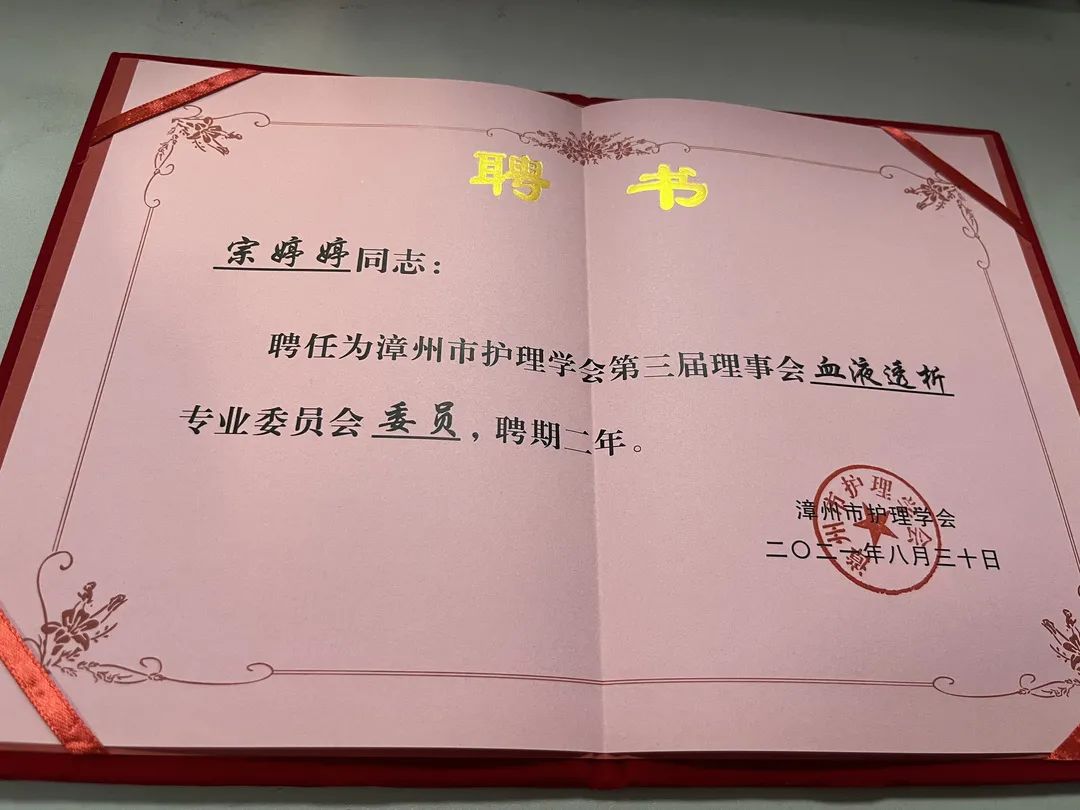 聘 书
宗婷婷同志：
聘任为漳州市护理学会第三届理事会血液透析
专业委员会委员，聘期二年。
漳州市护理学会
二〇二一年八月三十日
漳州市护理学会